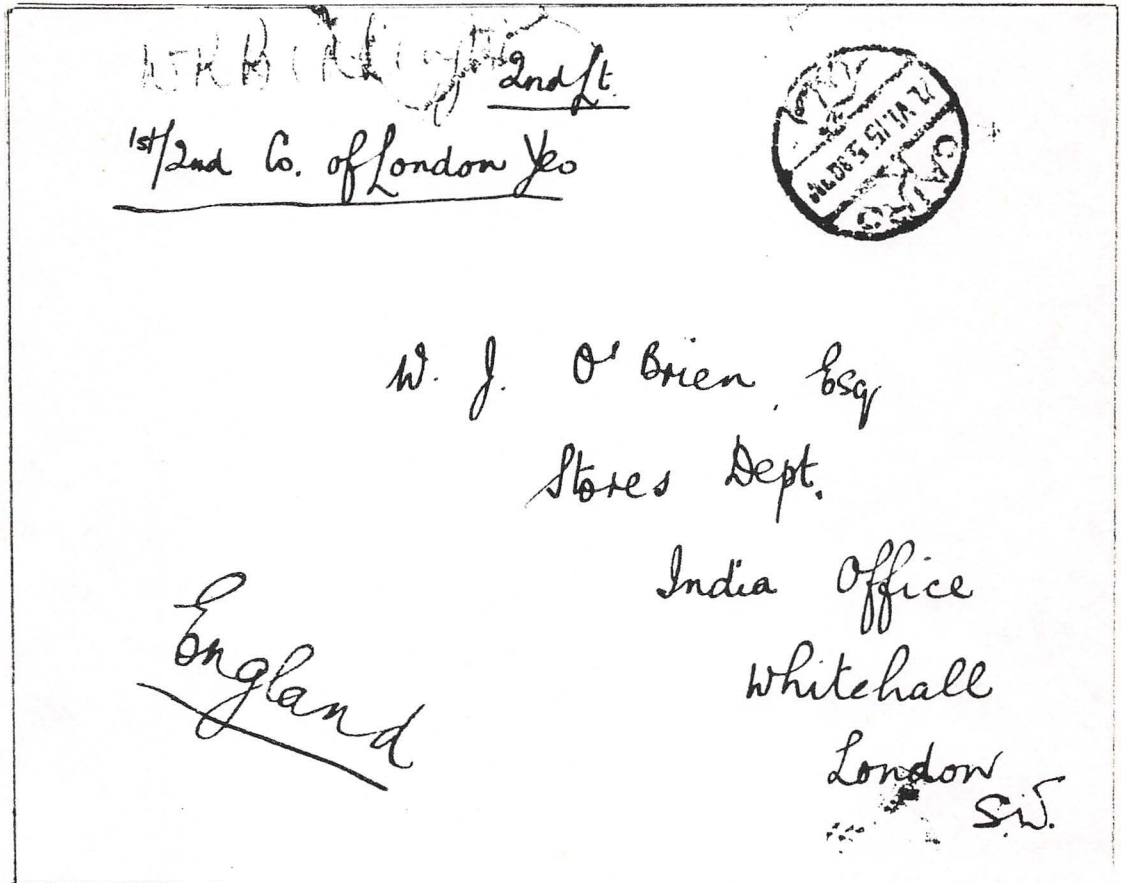 2nd Lt.
1st/2nd Co. of London Yeo
CAIRO
W. J. O'Brien, Esq
Stores Dept.
India Office
Whitehall
London
S.W.
England